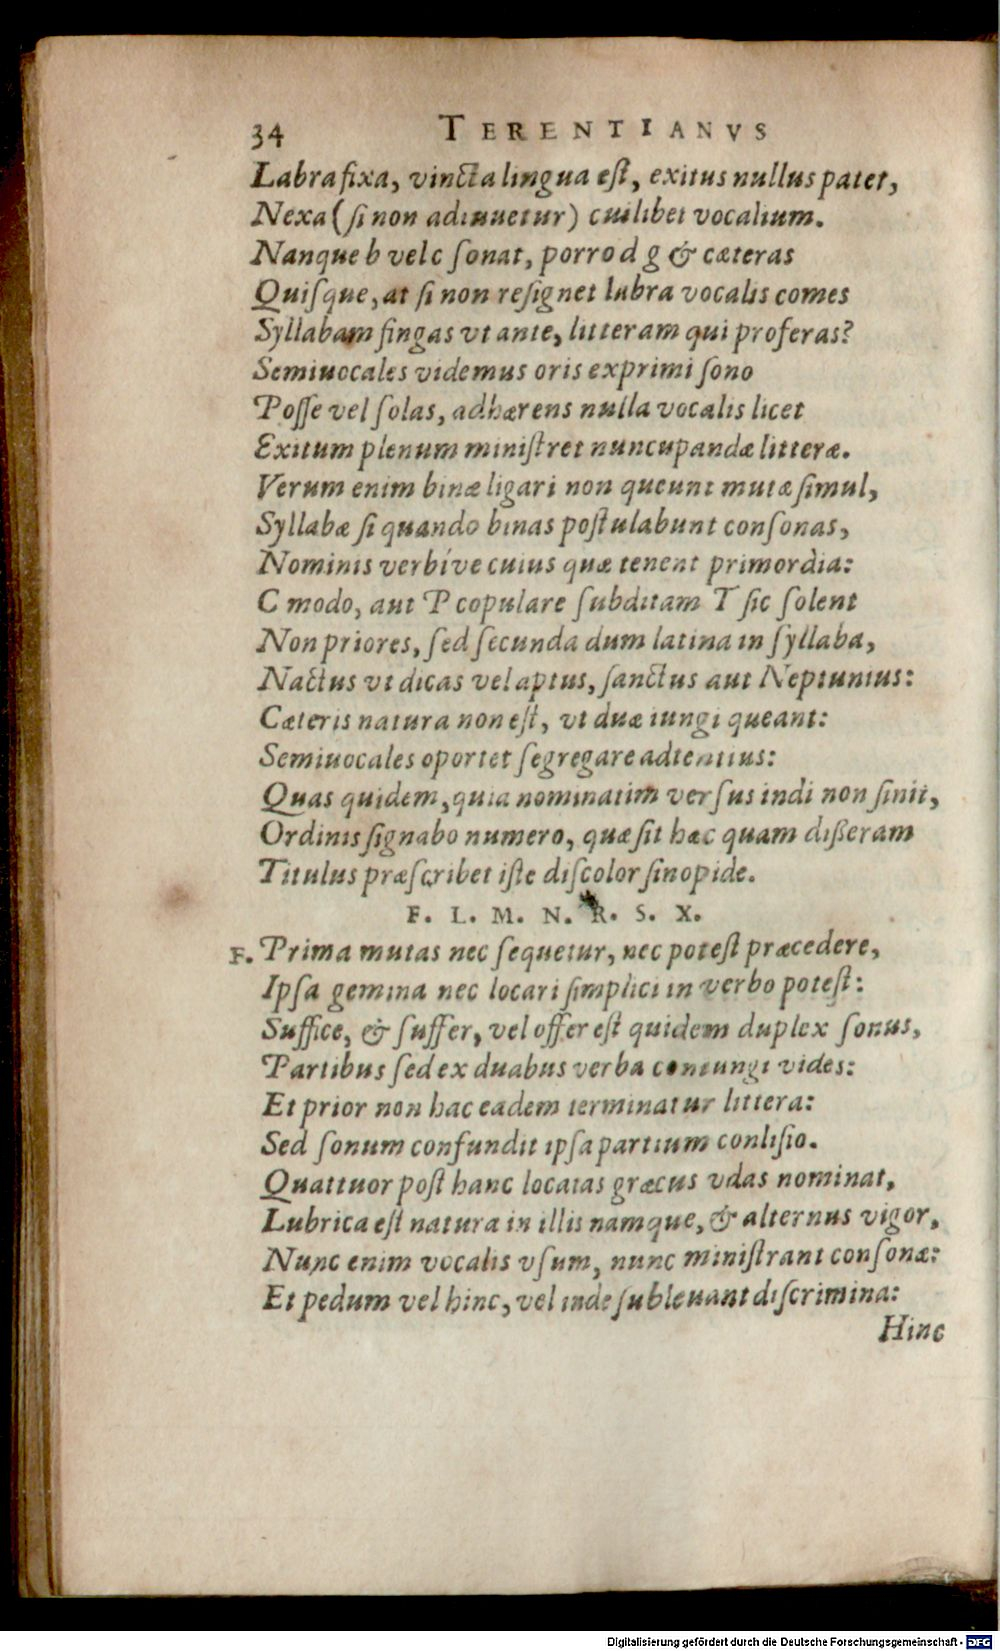 34 TERENTIANVS
Labra fixa, vincta lingua eſt, exitus nullus patet,
Nexa (ſi non adiuuetur) cuilibet vocalium.
Nanque b vel c ſonat, porro d g & cæteras
Quiſque, at ſi non reſignet labra vocalis comes
Syllabam fingas vt ante, litteram qui proferas?
Semiuocales videmus oris exprimi ſono
Poſſe vel ſolas, adhærens nulla vocalis licet
Exitum plenum miniſtret nuncupandæ litteræ.
Verum enim binæ ligari non queunt mutæ ſimul,
Syllabæ ſi quando binas poſtulabunt conſonas,
Nominis verbíve cuius quæ tenent primordia:
C modo, aut P copulare ſubditam T ſic ſolent
Non priores, ſed ſecunda dum latina in ſyllaba,
Nactus vt dicas vel aptus, ſanctus aut Neptunius:
Cæteris natura non eſt, vt duæ iungi queant:
Semiuocales oportet ſegregare adtentius:
Quas quidem, quia nominatim verſus indi non ſinit,
Ordinis ſignabo numero, quæ ſit hæc quam dißeram
Titulus præſcribet iſte diſcolor ſinopide.
F. L. M. N. R. S. X.
F. Prima mutas nec ſequetur, nec poteſt præcedere,
Ipſa gemina nec locari ſimplici in verbo poteſt:
Suffice, & ſuffer, vel offer eſt quidem duplex ſonus,
Partibus ſed ex duabus verba coniungi vides:
Et prior non hac eadem terminatur littera:
Sed ſonum confundit ipſa partium conliſio.
Quattuor poſt hanc locatas græcus vdas nominat,
Lubrica eſt natura in illis namque, & alternus vigor,
Nunc enim vocalis vſum, nunc miniſtrant conſonæ:
Et pedum vel hinc, vel inde ſubleuant diſcrimina:
Hinc
Digitalisierung gefördert durch die Deutsche Forschungsgemeinschaft - DFG